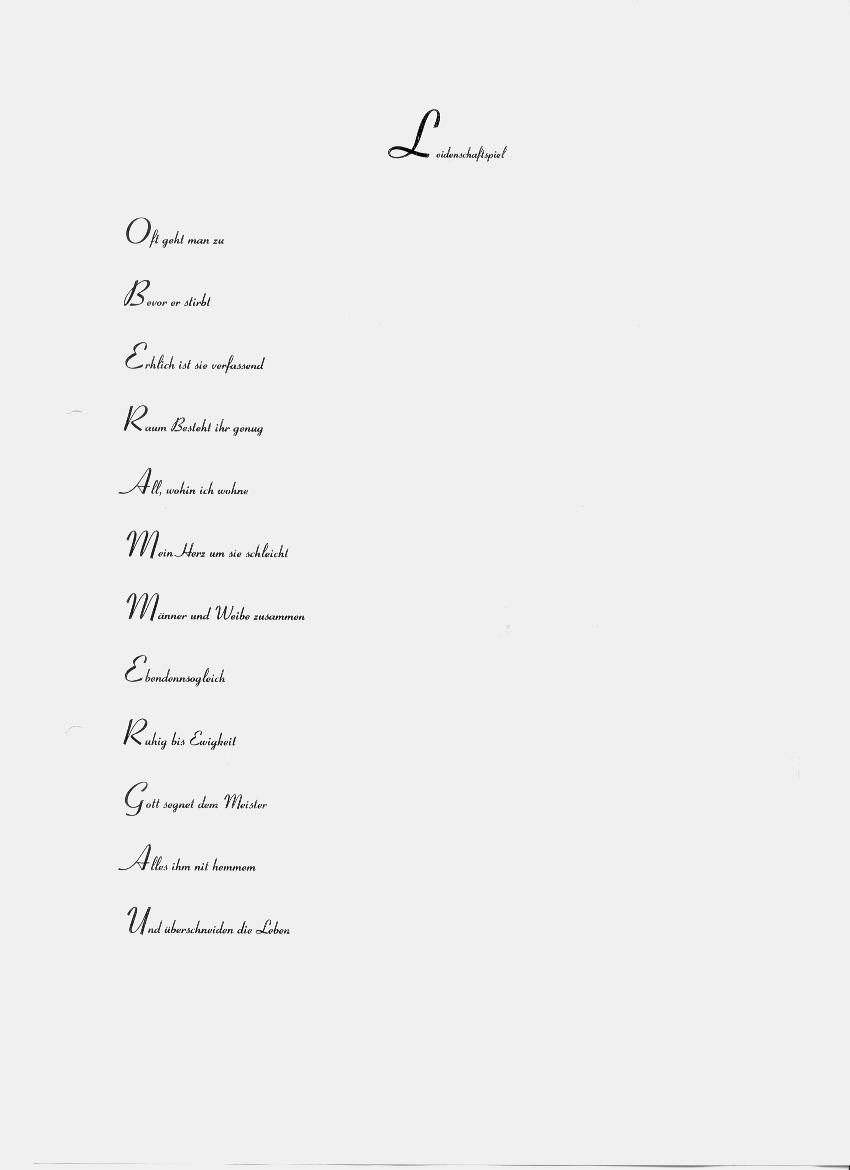 Leidenschaftspiel
Oft geht man zu
Bevor er stirbt
Erhlich ist sie verfassend
Raum Besteht ihr genug
All, wohin ich wohne
Mein Herz um sie schleicht
Männer und Weibe zusammen
Ebendennsogleich
Ruhig bis Ewigkeit
Gott segnet dem Meister
Alles ihm nit hemmem
Und überschneiden die Leben